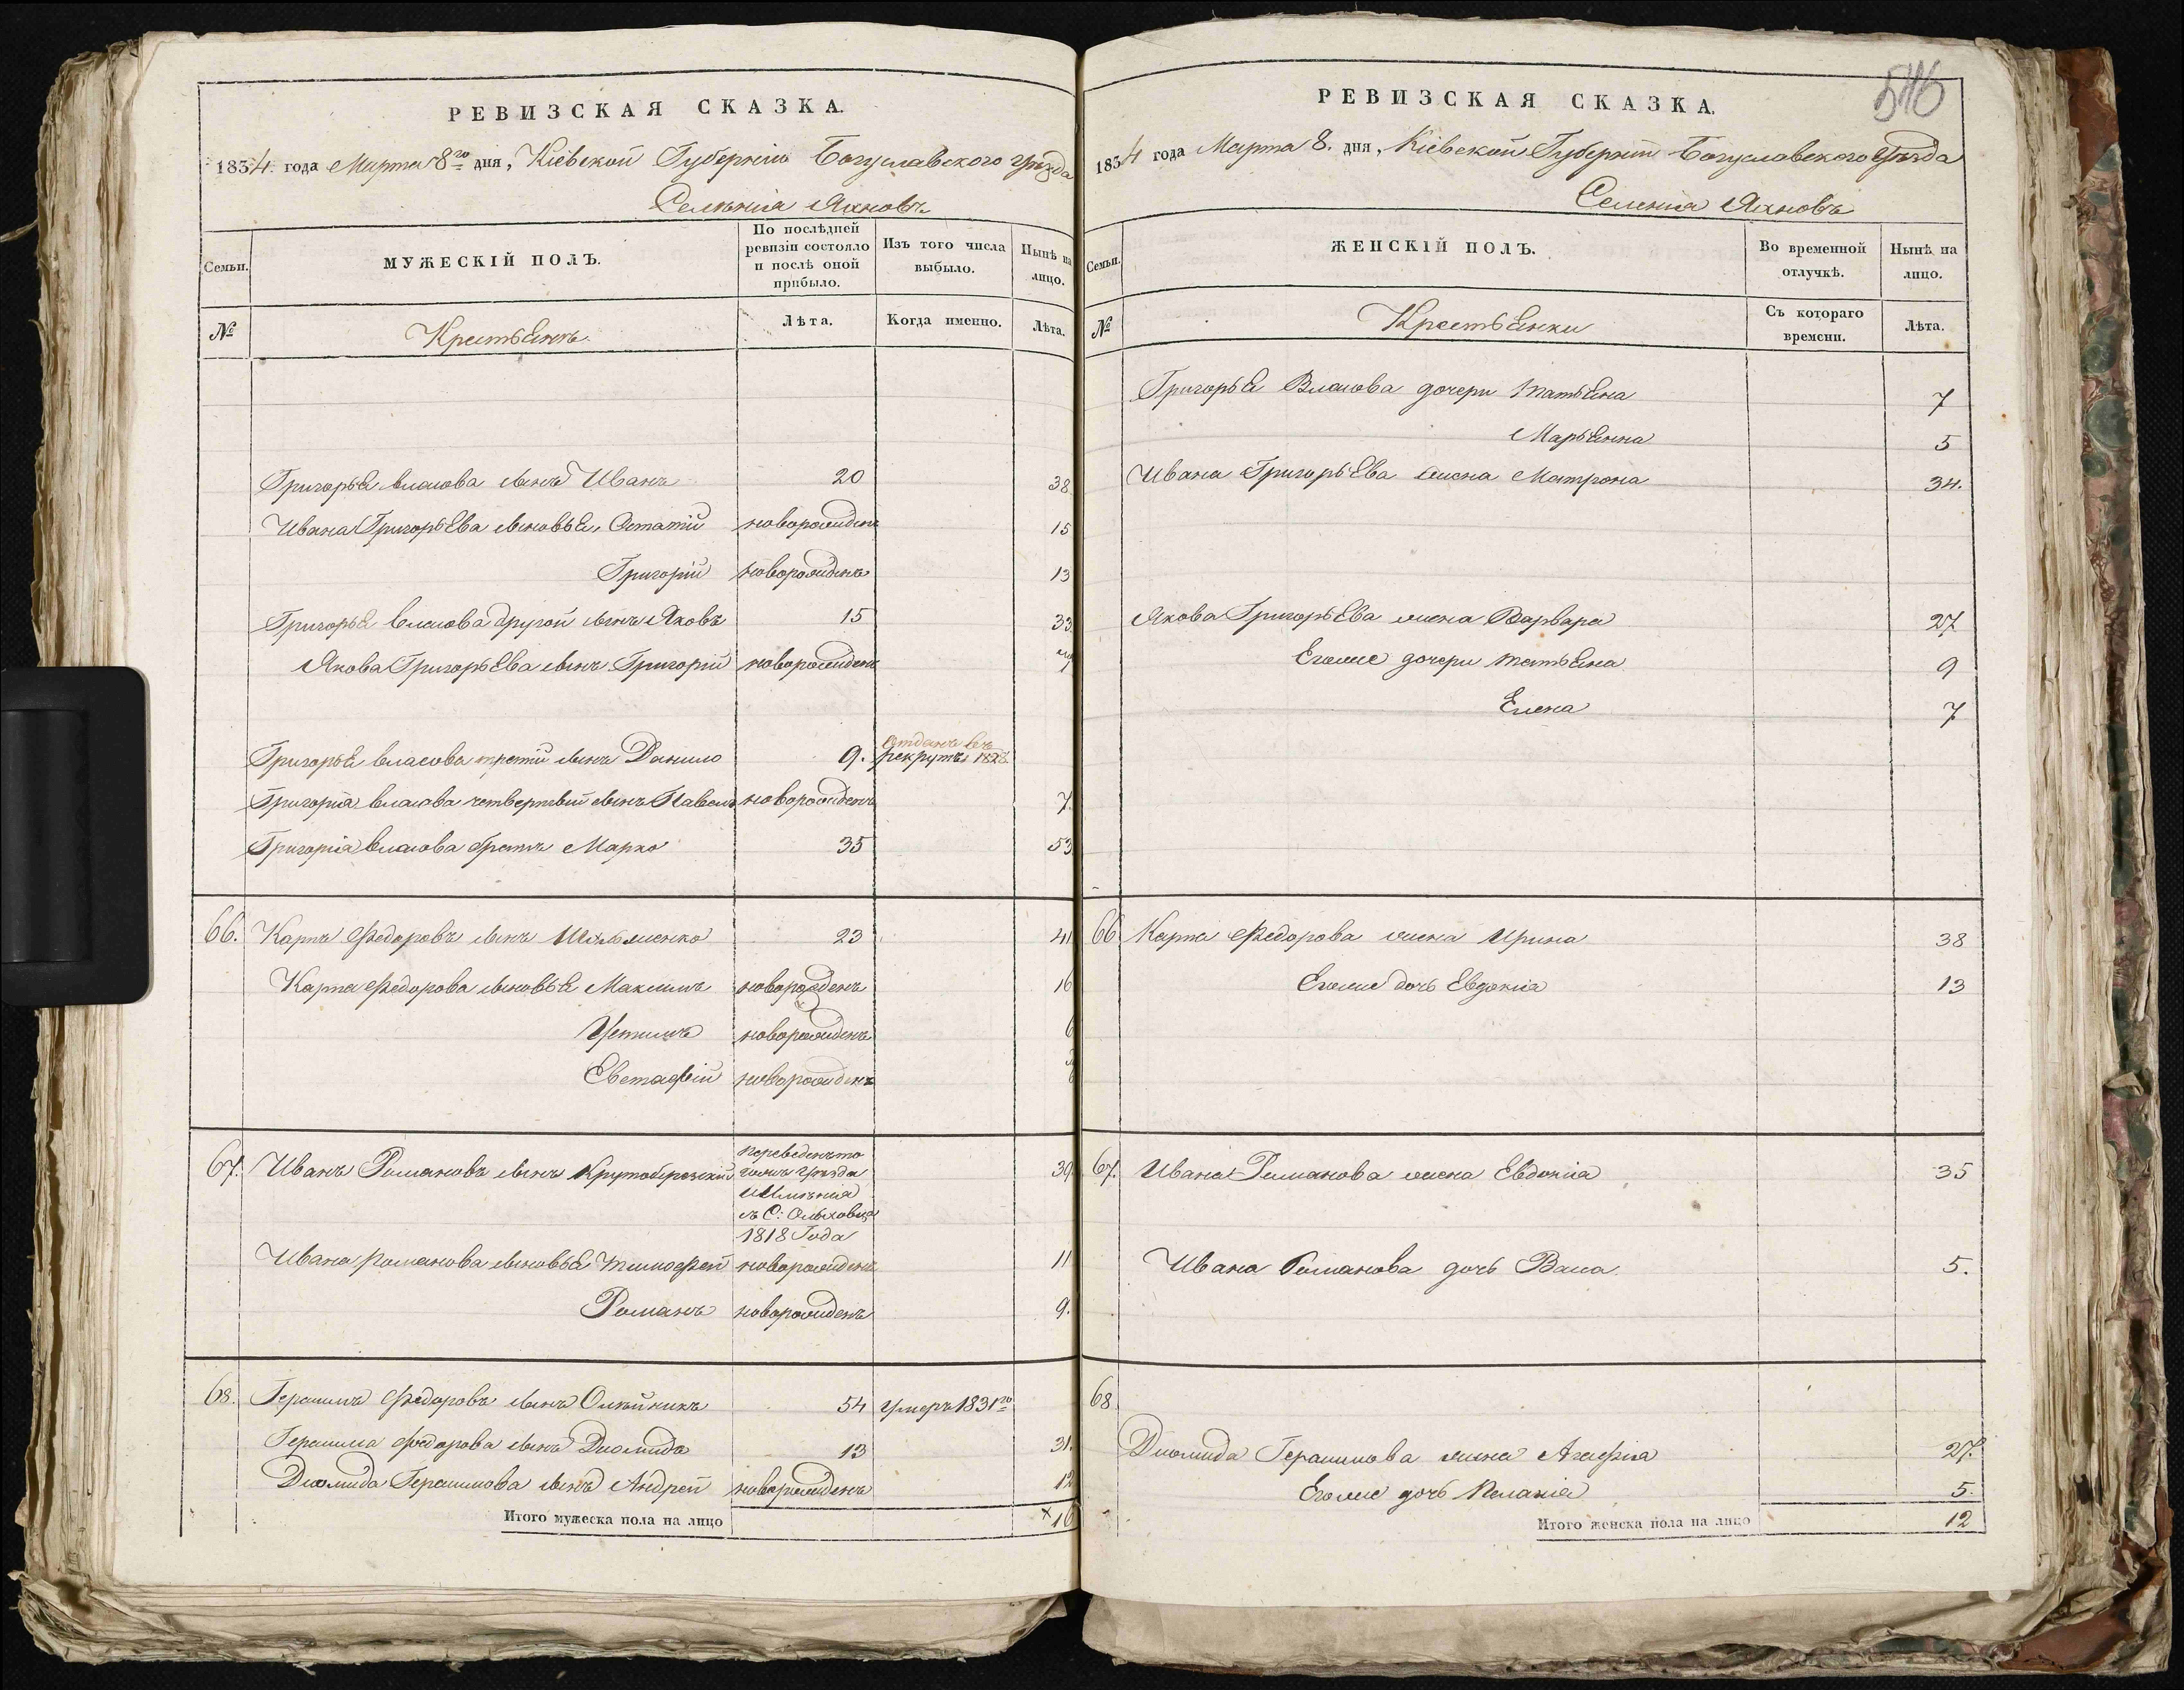 РЕВИЗСКАЯ СКАЗКА.
1834 года Марта 8го дня, Кіевской Губерніи Богуславского Уѣзда
Селенія Яхновъ
Семьи.
МУЖЕСКІЙ ПОЛЪ.
По послѣдней ревизіи состояло и послѣ оной прибыло.
Изъ того числа выбыло.
Нынѣ на лицо.
№
Крестьянъ.
Лѣта.
Когда именно.
Лѣта.
Григорья Власова сынъ Иванъ 20 38
Ивана Григорьева сыновья, Остатій новорожденъ 15
Григорій новорожденъ 13
Григорья Власова другой сынъ Яковъ 15 33
Якова Григорьева сынъ Григорій новорожденъ 7
Григорья Власова третій сынъ Данило 9. Отданъ въ рекруты 1828.
Григорія Власова четвертый сынъ Павелъ новорожденъ 7.
Григорія Власова братъ Марко 35 53
66. Карпъ Федоровъ сынъ 23 41
Карпа Федорова сыновья Максимъ новорожденъ 16
Устимъ новорожденъ 6
Евстафій новорожденъ 3
67. Иванъ Романовъ сынъ Крутоберезкій 39
переведенъ то
гожъ Уѣзда
и Имѣнія
съ С: Ольховца
1818 Года
Ивана Романова сыновья Тимофей новорожденъ 11
Романъ новорожденъ 9.
68. Герасимъ Федоровъ сынъ Олѣйникъ 54 Умеръ 1831го
Герасима Федорова сынъ Диомидъ 13 31.
Диомида Герасимова сынъ Андрей новорожденъ 12
Итого мужеска пола на лицо 16
РЕВИЗСКАЯ СКАЗКА.
1834 года Марта 8. дня, Кіевской Губерніи Богуславского Уѣзда
Селенія Яхновъ
Семьи.
ЖЕНСКІЙ ПОЛЪ.
Во временной отлучкѣ.
Нынѣ на лицо.
№
Крестьянки
Съ котораго времени.
Лѣта.
Григорья Власова дочери Татьяна 7
Марьянна 5
Ивана Григорьева жена Матрона 34.
Якова Григорьева жена Варвара 27
Егоже дочери Татьяна 9
Елена 7
66 Карпа Федорова жена Ирина 38
Егоже дочь Евдокія 13
67. Ивана Романова жена Евдокія 35
Ивана Романова дочь Васа 5.
68
Диомида Герасимова жена Агафія 27.
Егоже дочь Пелагія 5.
Итого женска пола на лицо 12